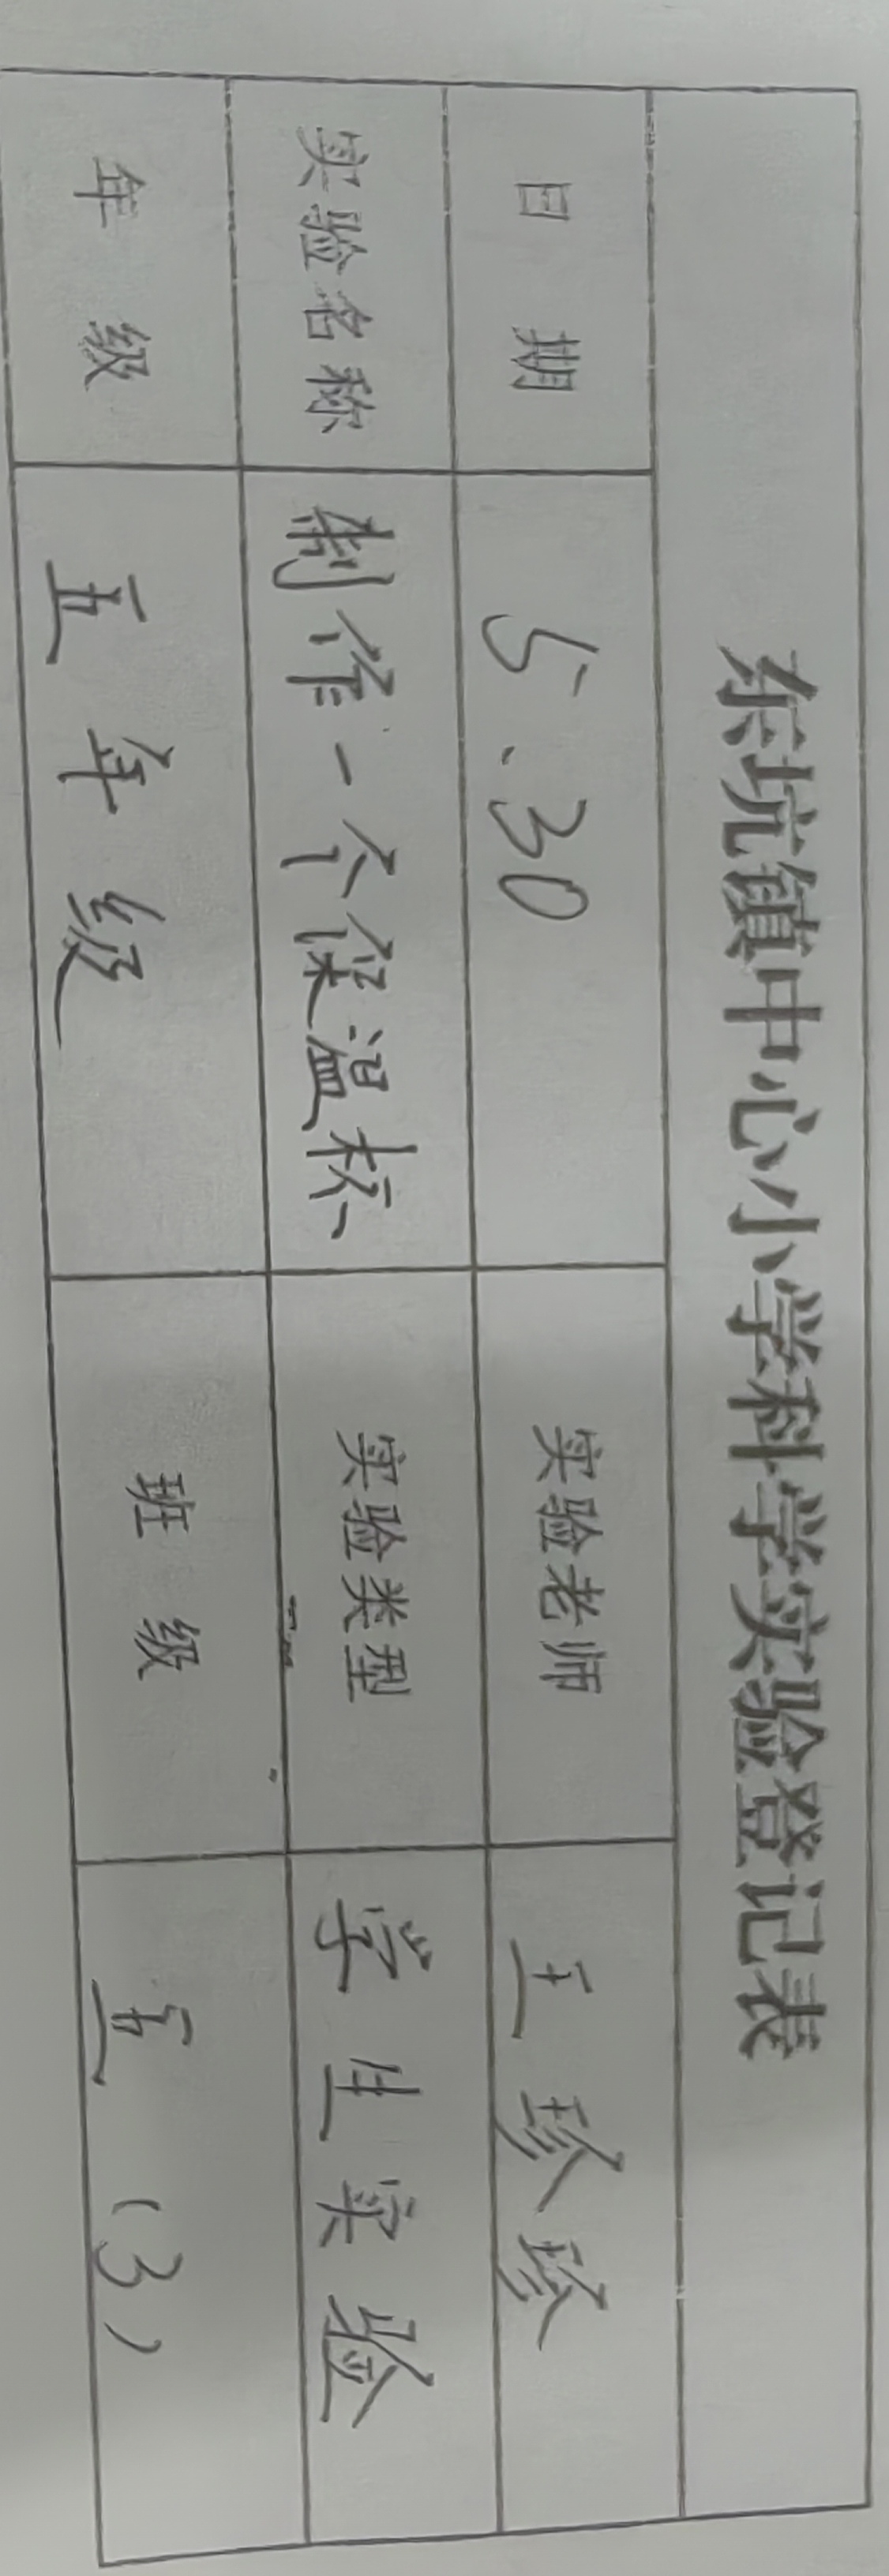 东坑镇中心小学科学实验登记表
日期 5.30 实验老师 王珍珍
实验名称 制作一个保温杯 实验类型 学生实验
年级 五年级 班级 五(3)